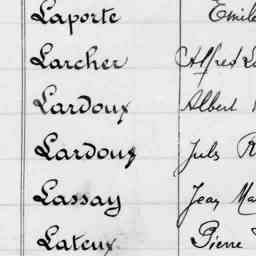 Laporte Emile
Larcher Alfred
Lardoux Albert
Lardoux Juls
Lassay Jean
Lateux Pierre